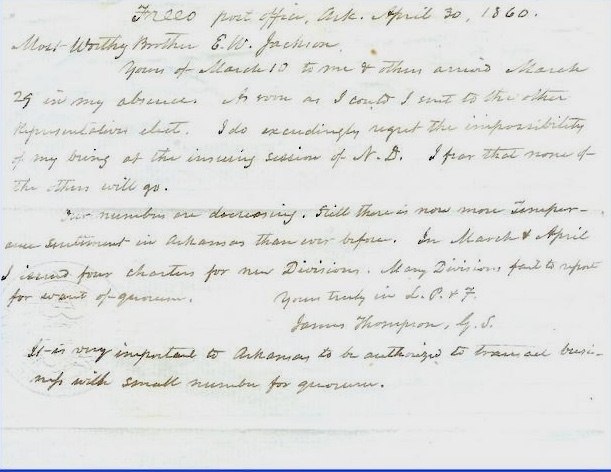 Freeo post office, Ark. April 30, 1860.
Most Worthy Brother E. W. Jackson,
Yours of March 10 to me & others arrived March
29 in my absence. As soon as I could I sent to the other
Representatives elect. I do exceedingly regret the impossibility
of my being at the insuing session of N. D. I fear that none of
the others will go.
Our numbers are decreasing. Still there is now more Temper-
ance sentiment in Arkansas than ever before. In March & April
I issued four charters for new Divisions. Many Divisions fail to report
for want of quorum. Yours truly in L. P. & F.
James Thompson, G. S.
It is very important to Arkansas to be authorized to transact busi-
ness with small number for quorum.